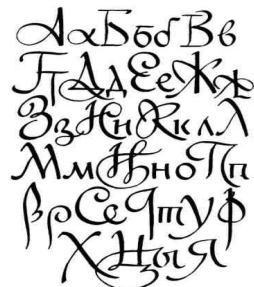 АаБбб Вв
ГгДдЕеЖж
ЗзИиКклЛ
МмНноПп
РрСсЧтуФ
ХЦцыЯ